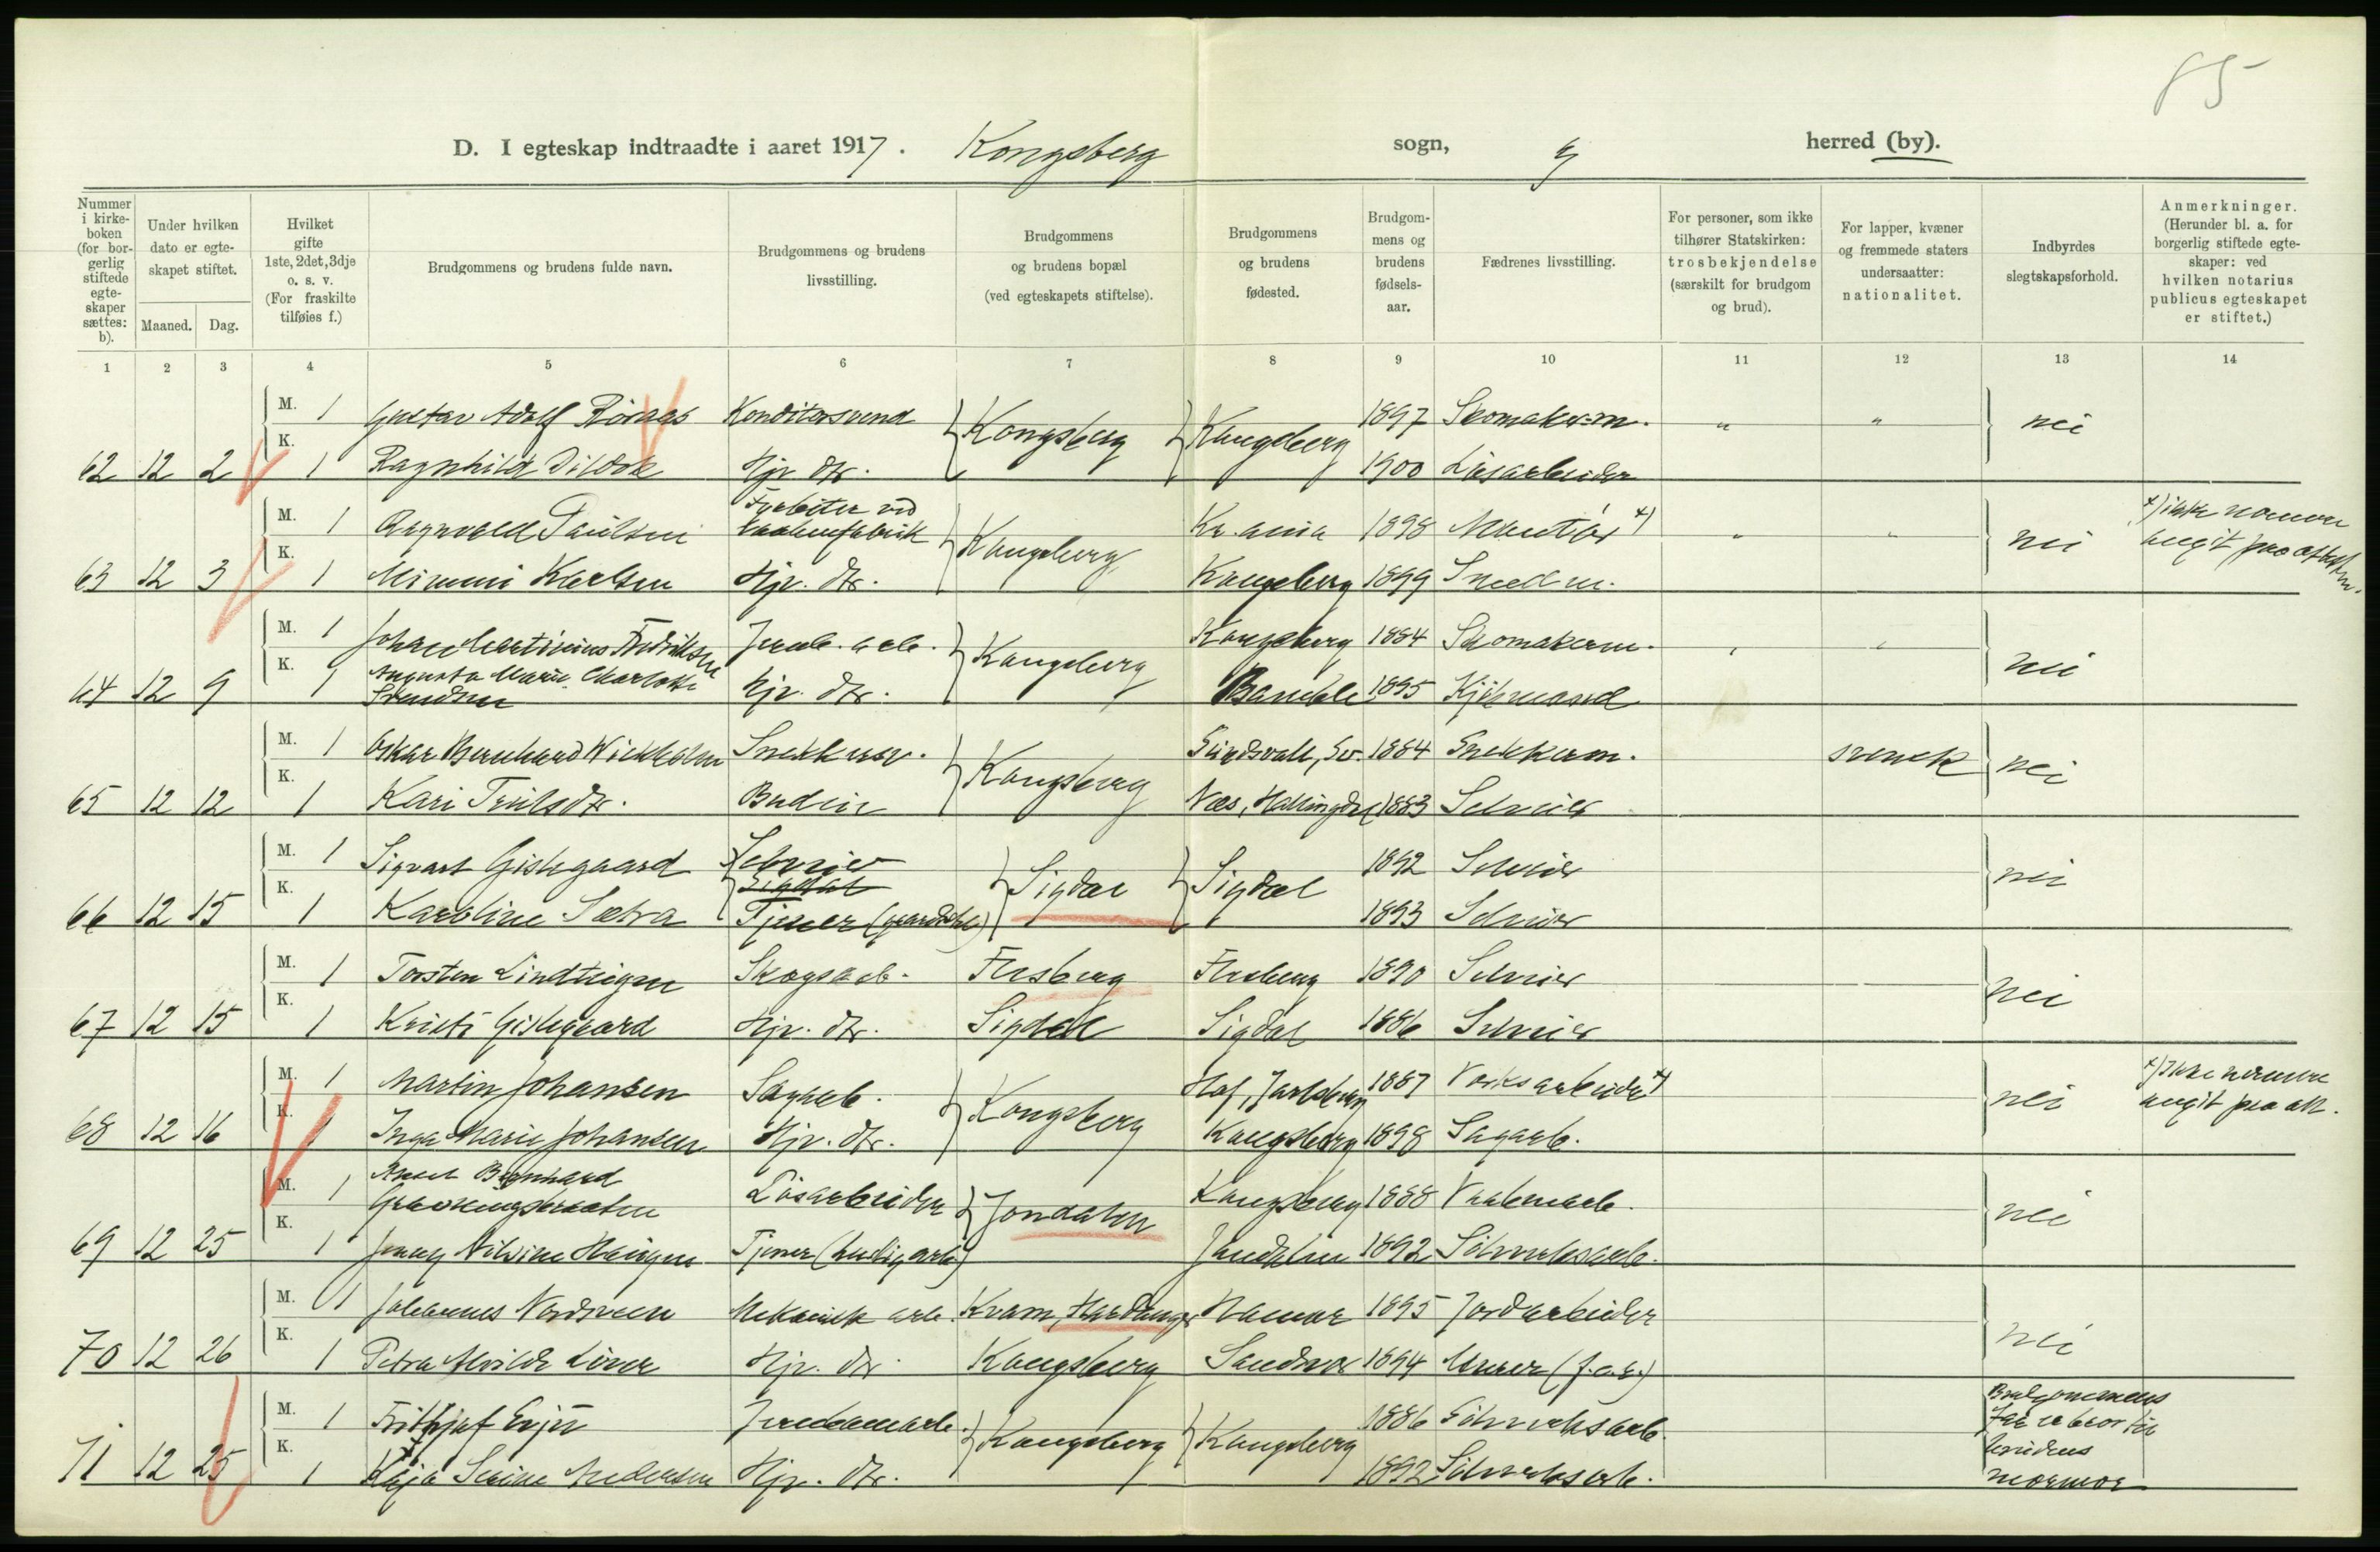 85
D. I egteskap indtraadte i aaret 1917. Kongsberg sogn, herred (by).
Nummer i kirkeboken (for borgerlig stiftede egteskaper sættes: b).
Under hvilken dato er egteskapet stiftet.
Maaned. Dag.
Hvilket gifte 1ste, 2det, 3dje o. s. v. (For fraskilte tilføies f.)
Brudgommens og brudens fulde navn.
Brudgommens og brudens livsstilling.
Brudgommens og brudens bopæl (ved egteskapets stiftelse).
Brudgommens og brudens fødested.
Brudgommens og brudens fødselsaar.
Fædrenes livsstilling.
For personer, som ikke tilhører Statskirken: trosbekjendelse (særskilt for brudgom og brud).
For lapper, kvæner og fremmede staters undersaatter: nationalitet.
Indbyrdes slegtskapsforhold.
Anmerkninger. (Herunder bl. a. for borgerlig stiftede egteskaper: ved hvilken notarius publicus egteskapet er stiftet.)
1 2 3 4 5 6 7 8 9 10 11 12 13 14
M. 1 Gustav Adolf Konditorsvend Kongsberg Kongsberg 1897 Skomakerm. " " nei
62 12 2 K. 1 Ragnhild Hjv. dtr. 1900 Løsarbeider
M. 1 Ragnvald Paulsen ved vaabenfabrik Kongsberg Kr.ania 1898 Montør x) " " nei x) ikke nærmere angit paa attesten.
63 12 3 K. 1 Mimmi Karlsen Hjv. dtr. Kongsberg 1899 Snedm.
M. 1 Johan Martinius Fredriksen Jernb. arb. Kongsberg Kongsberg 1884 Skomakerm. nei
64 12 9 K. 1 Augusta Marie Charlotte Svendsen Hjv. dtr. Bamble 1895 Kjøbmand
M. 1 Oskar Bernhard Wickholm Snekkersv. Kongsberg Sundsvall, Sv. 1884 Snekkerm. svensk nei
65 12 12 K. 1 Kari Trulsdtr. Budeie Næs, Hallingdal 1883 Selveier
M. 1 Sigvart Gislegaard Selveier Sigdal Sigdal 1892 Selveier nei
Sigdal
66 12 15 K. 1 Karoline Sætra Tjener (gaardarb.) 1893 Selveier
M. 1 Torsten Lindteigen Skogsarb. Flesberg Flesberg 1890 Selveier nei
67 12 15 K. 1 Kristi Gislegaard Hjv. dtr. Sigdal Sigdal 1886 Selveier
M. 1 Martin Johansen Sagarb. Kongsberg Hof, Jarlsberg 1887 Verksarbeider x) nei x) Ikke nærmere angit paa att.
68 12 16 K. 1 Inga Marie Johansen Hjv. dtr. Kongsberg 1898 Sagarb.
M. 1 Bernhard Løsarbeider Jondalen Kongsberg 1888 Vaabenarb. nei
69 12 25 K. 1 Jenny Nilsine Haugen Tjener (huslig arb.) Jondalen 1892 Sølvverksarb.
M. 1 Johannes Nordsveen Mekanisk arb. Kvam, Hardanger Hamar 1895 Jordarbeider nei
70 12 26 K. 1 Petra Alvilde Hjv. dtr. Kongsberg 1894 Murer (f.a.s.)
M. 1 Frithjof Jernbanearb. Kongsberg Kongsberg 1886 Sølvverksarb. Brudgommens far er bror til brudens mormor
71 12 25 K. 1 Kaja Serine Andersen Hjv. dtr. 1892 Sølvverksarb.